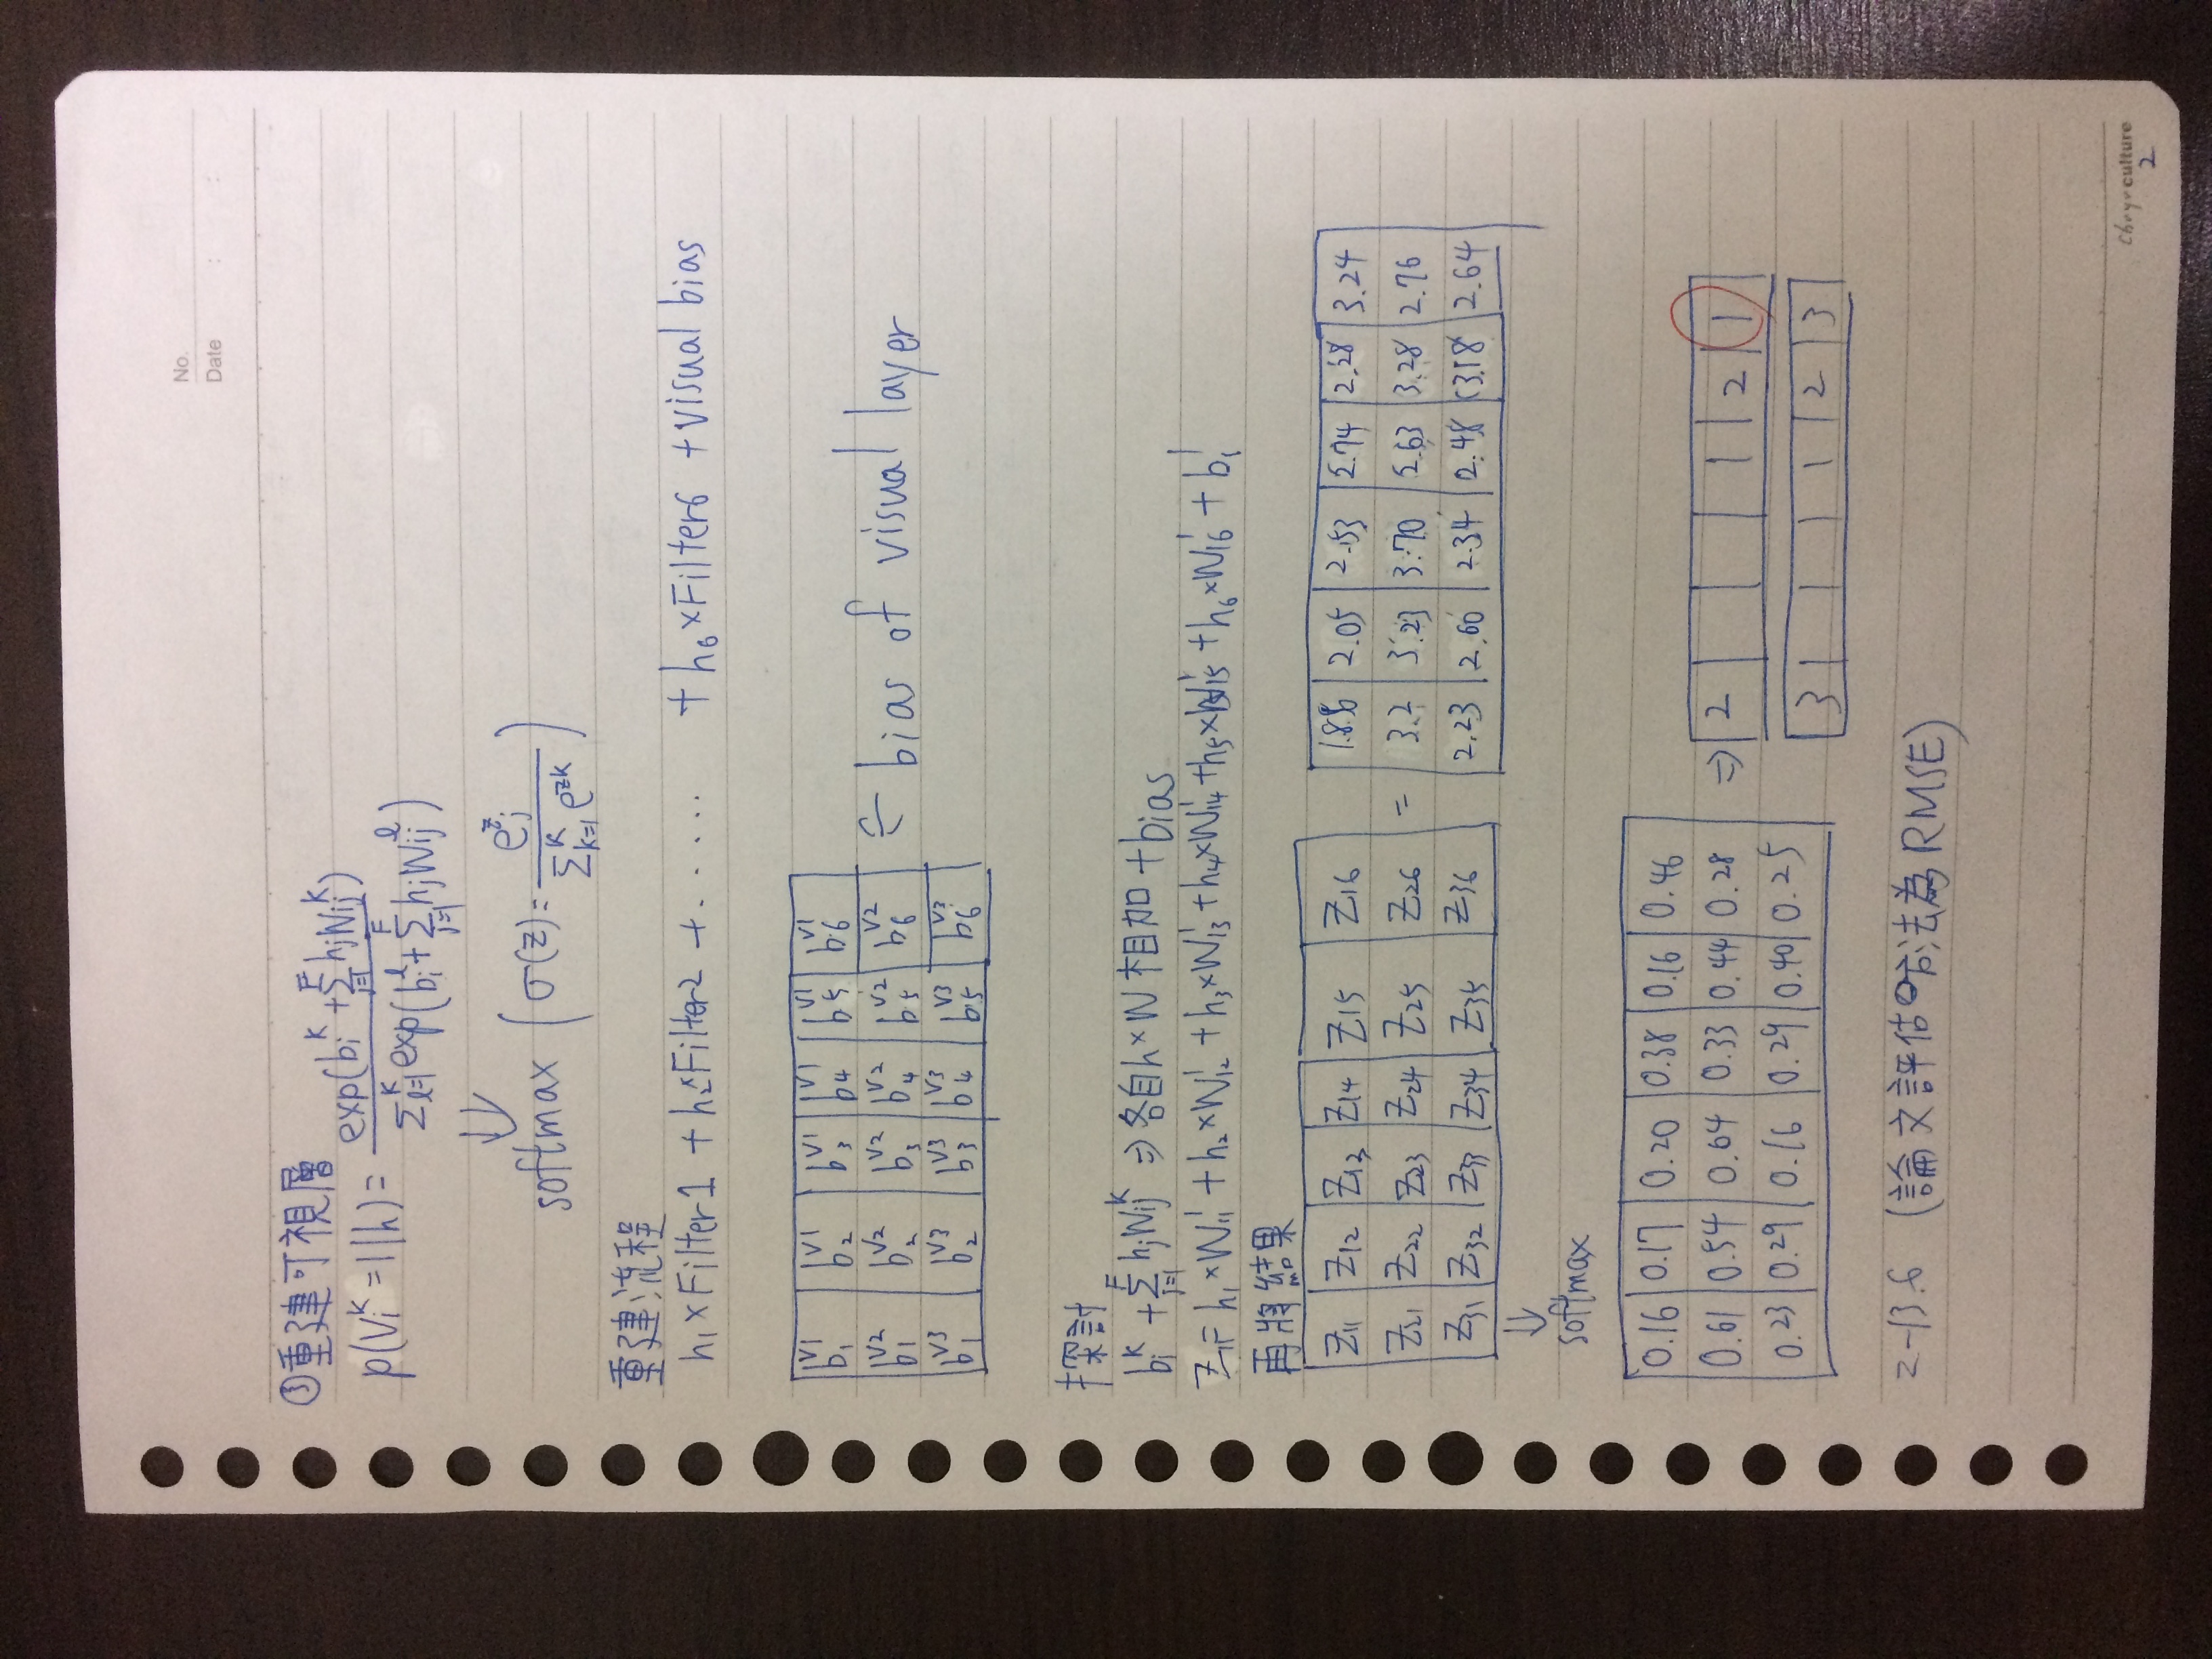 No.
Date : :
③重建可視層
p(Vi^k=1|h)= exp(bi^k+Σ_{j=1}^F hjWij^k) / Σ_{l=1}^K exp(bi^l+Σ_{j=1}^F hjWij^l)
⇓
softmax (σ(z)= e^zj / Σ_{k=1}^K e^zk)
重建流程
h1×Filter1 + h2×Filter2 + ...... + h6×Filter6 + visual bias
b1^V1 b2^V1 b3^V1 b4^V1 b5^V1 b6^V1
b1^V2 b2^V2 b3^V2 b4^V2 b5^V2 b6^V2 ⇐ bias of visual layer
b1^V3 b2^V3 b3^V3 b4^V3 b5^V3 b6^V3
探討
bi^k + Σ_{j=1}^F hjWij^k ⇒ 各自h×W相加+bias
Z11= h1×W11^1 + h2×W12^1 + h3×W13^1 + h4×W14^1 + h5×W15^1 + h6×W16^1 + b1^1
再將結果
Z11 Z12 Z13 Z14 Z15 Z16
Z21 Z22 Z23 Z24 Z25 Z26 =
Z31 Z32 Z33 Z34 Z35 Z36
2.05 3.24
3.2 3.23 3.70 2.63 3.28 2.76
2.23 2.60 2.34 2.48 3.18 2.64
⇓
softmax
0.16 0.17 0.20 0.38 0.16 0.46
0.61 0.54 0.64 0.33 0.44 0.28
0.23 0.29 0.16 0.29 0.40 0.25
⇒ 2 1 2 1
3 1 2 3
2-13.6 (論文評估の方法為RMSE)
culture
2